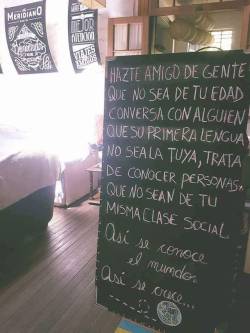 MERIDIANO
HAZTE AMIGO DE GENTE
QUE NO SEA DE TU EDAD
CONVERSA CON ALGUIEN
QUE SU PRIMERA LENGUA
NO SEA LA TUYA, TRATA
DE CONOCER PERSONAS
QUE NO SEAN DE TU
MISMA CLASE SOCIAL.
Así se conoce
el mundo.
Así se crece...